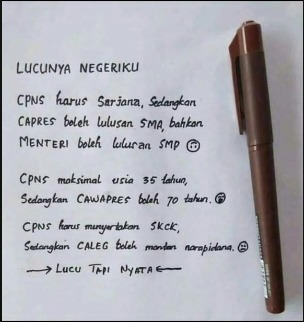 LUCUNYA NEGERIKU
CPNS harus Sarjana, Sedangkan
CAPRES boleh lulusan SMA, bahkan
MENTERI boleh lulusan SMP
CPNS maksimal usia 35 tahun,
Sedangkan CAWAPRES boleh 70 tahun.
CPNS harus menyertakan SKCK,
Sedangkan CALEG boleh mantan narapidana.
→ LUCU TAPI NYATA ←